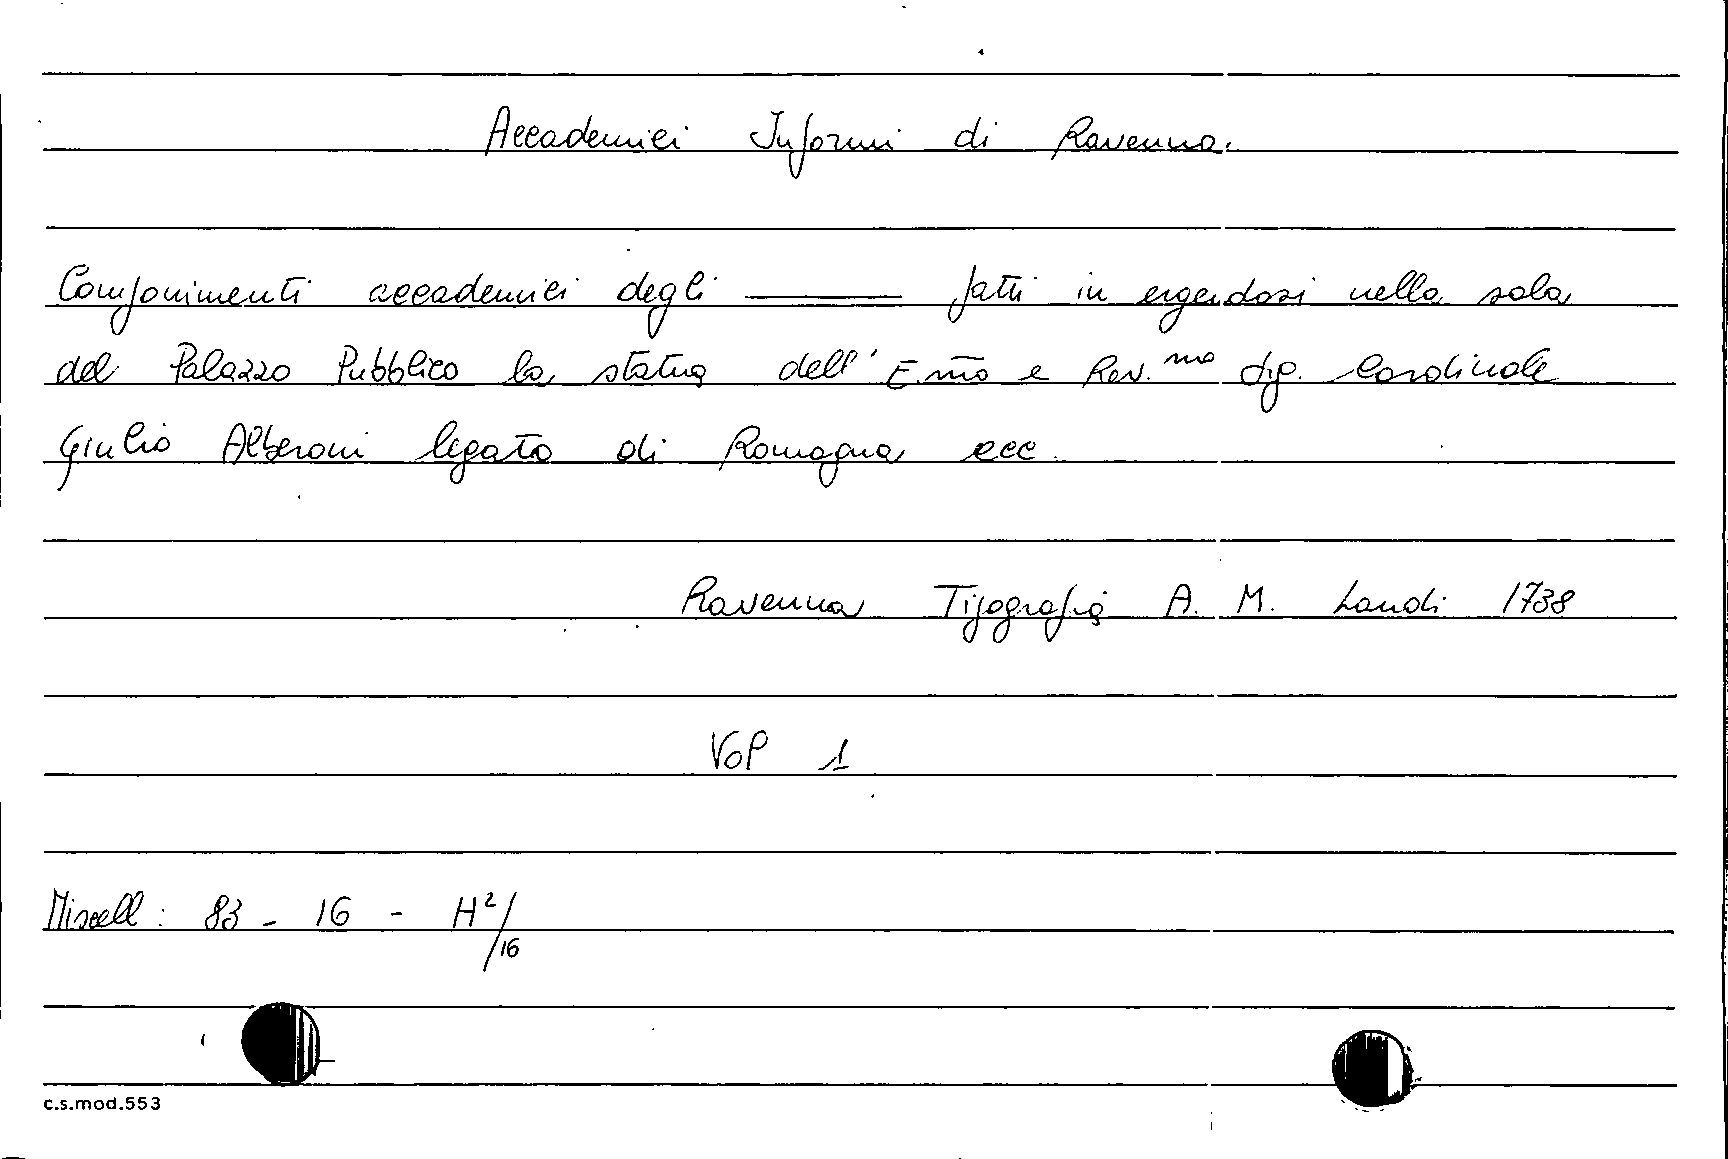 Accademici Informi di Ravenna.
Componimenti accademici degli ——— fatti in ergendosi nella sala
del Palazzo Pubblico la statua dell' E.mo e Rev.mo Sig. Cardinale
Giulio Alberoni legato di Romagna ecc.
Ravenna Tipografia A. M. Landi 1738
Vol 1
Miscell: 83 - 16 - H2/16
c.s.mod.553